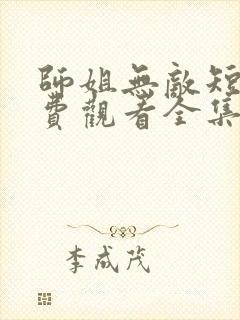 師姐無敵短
費觀看全集
李成茂